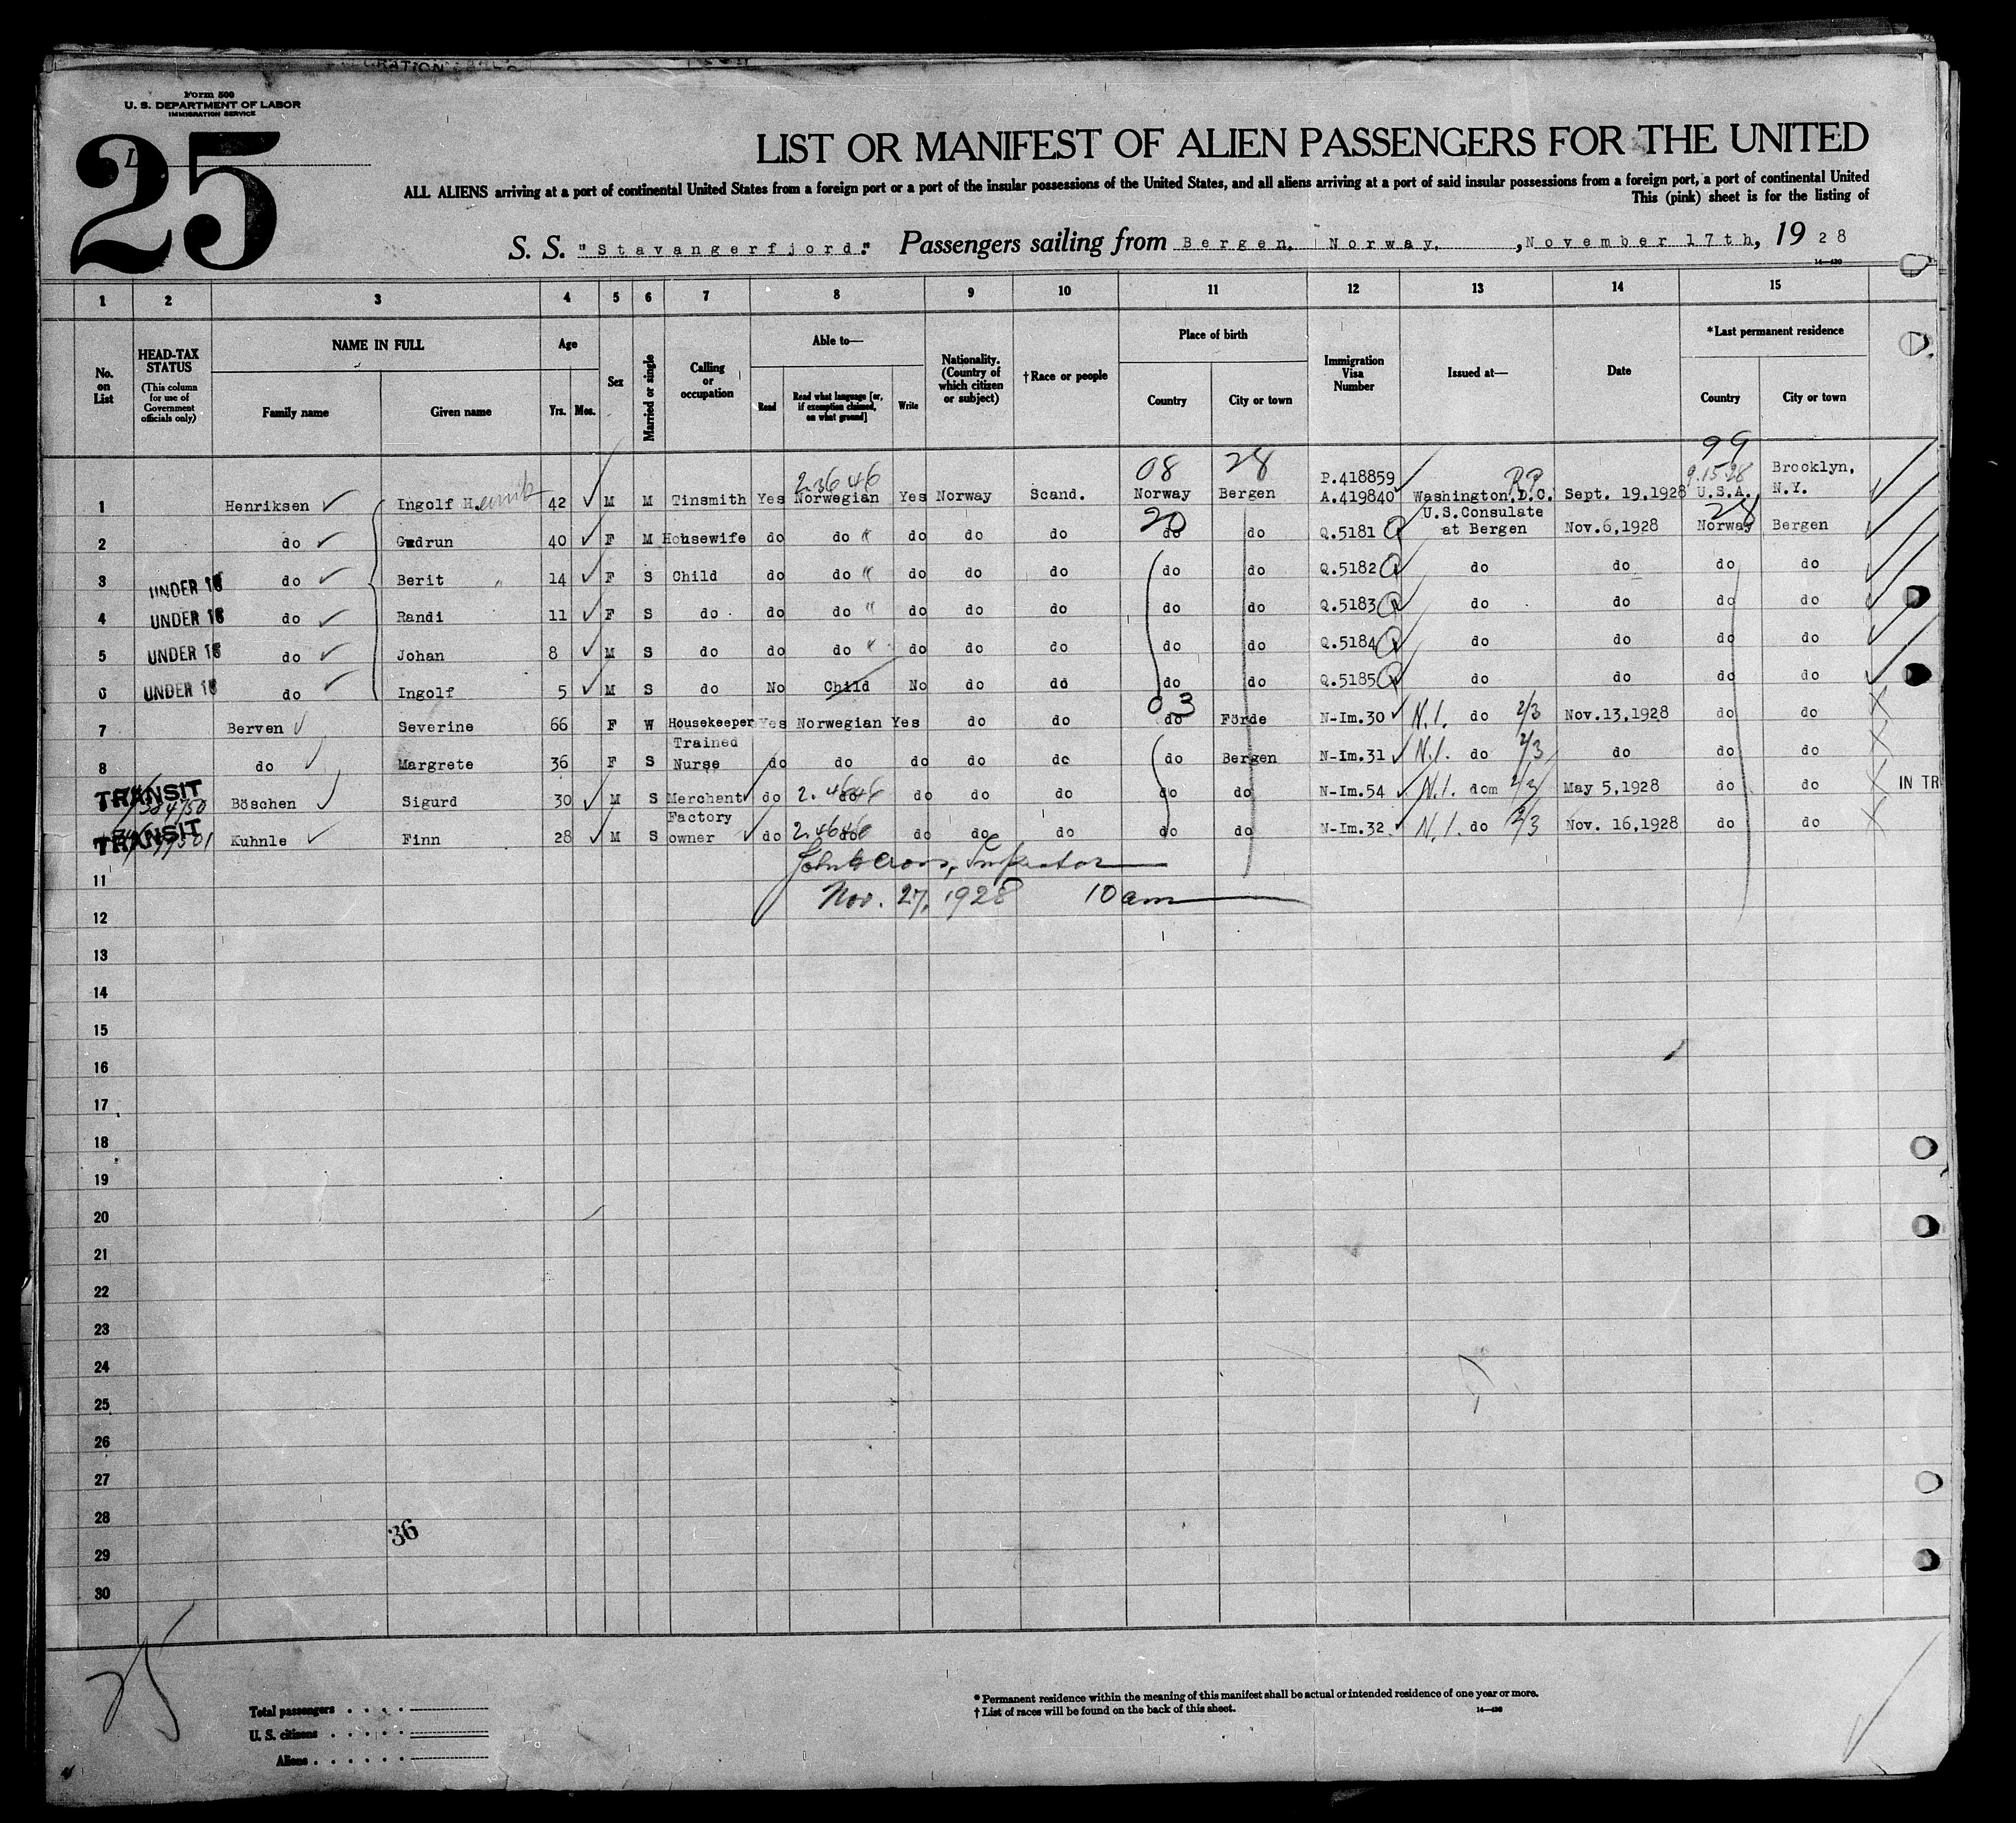 Form 500
U. S. DEPARTMENT OF LABOR
IMMIGRATION SERVICE
25
LIST OR MANIFEST OF ALIEN PASSENGERS FOR THE UNITED
ALL ALIENS arriving at a port of continental United States from a foreign port or a port of the insular possessions of the United States, and all aliens arriving at a port of said insular possessions from a foreign port, a port of continental United
This (pink) sheet is for the listing of
S. S. "Stavangerfjord." Passengers sailing from Bergen, Norway, , November 17th, 19 28
14—430
1 2 3 4 5 6 7 8 9 10 11 12 13 14 15
No. on List
HEAD-TAX STATUS (This column for use of Government officials only)
NAME IN FULL
Family name Given name
Age
Yrs. Mos.
Sex
Married or single
Calling or occupation
Able to—
Read Read what language [or, if exemption claimed, on what ground] Write
Nationality. (Country of which citizen or subject)
†Race or people
Place of birth
Country City or town
Immigration Visa Number
Issued at—
Date
*Last permanent residence
Country City or town
08 28 99
2.36 46 P.418859 R.P. 9.15 28 Brooklyn,
1 Henriksen Ingolf H. 42 M M Tinsmith Yes Norwegian Yes Norway Scand. Norway Bergen A.419840 Washington, D.C. Sept. 19,1928 U.S.A. N.Y.
20 28
2 do Gudrun 40 F M Housewife do do " do do do do do Q.5181 U.S.Consulate at Bergen Nov.6,1928 Norway Bergen
3 UNDER 16 do Berit 14 F S Child do do " do do do do do Q.5182 do do do do
4 UNDER 16 do Randi 11 F S do do do " do do do do do Q.5183 do do do do
5 UNDER 16 do Johan 8 M S do do do " do do do do do Q.5184 do do do do
6 UNDER 16 do Ingolf 5 M S do No Child No do do do do Q.5185 do do do do
03
7 Berven Severine 66 F W Housekeeper Yes Norwegian Yes do do do Förde N-Im.30 N.I. do 2/3 Nov.13,1928 do do
8 do Margrete 36 F S Trained Nurse do do do do do do Bergen N-Im.31 N.I. do 2/3 do do do
TRANSIT Böschen Sigurd 30 M S Merchant do 2. 4646 do do do do do do N-Im.54 N.I. dom 2/3 May 5,1928 do do IN TR
TRANSIT Kuhnle Finn 28 M S Factory owner do 2.4646 do do do do do do N-Im.32 N.I. do 2/3 Nov. 16,1928 do do
11 Inspector
12 Nov. 27, 1928 10 am
13
14
15
16
17
18
19
20
21
22
23
24
25
26
27
28
36
29
30
25
Total passengers
U. S. citizens
Aliens
* Permanent residence within the meaning of this manifest shall be actual or intended residence of one year or more.
† List of races will be found on the back of this sheet.
14—430